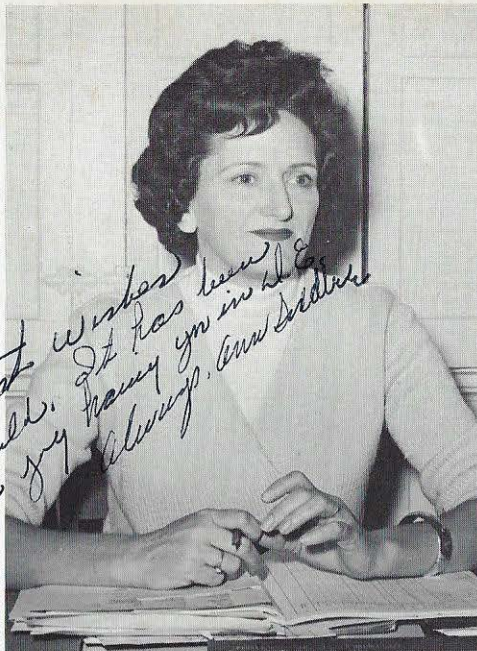 st wishes
ld. It has been
joy having you in D.E.
Always, Ann